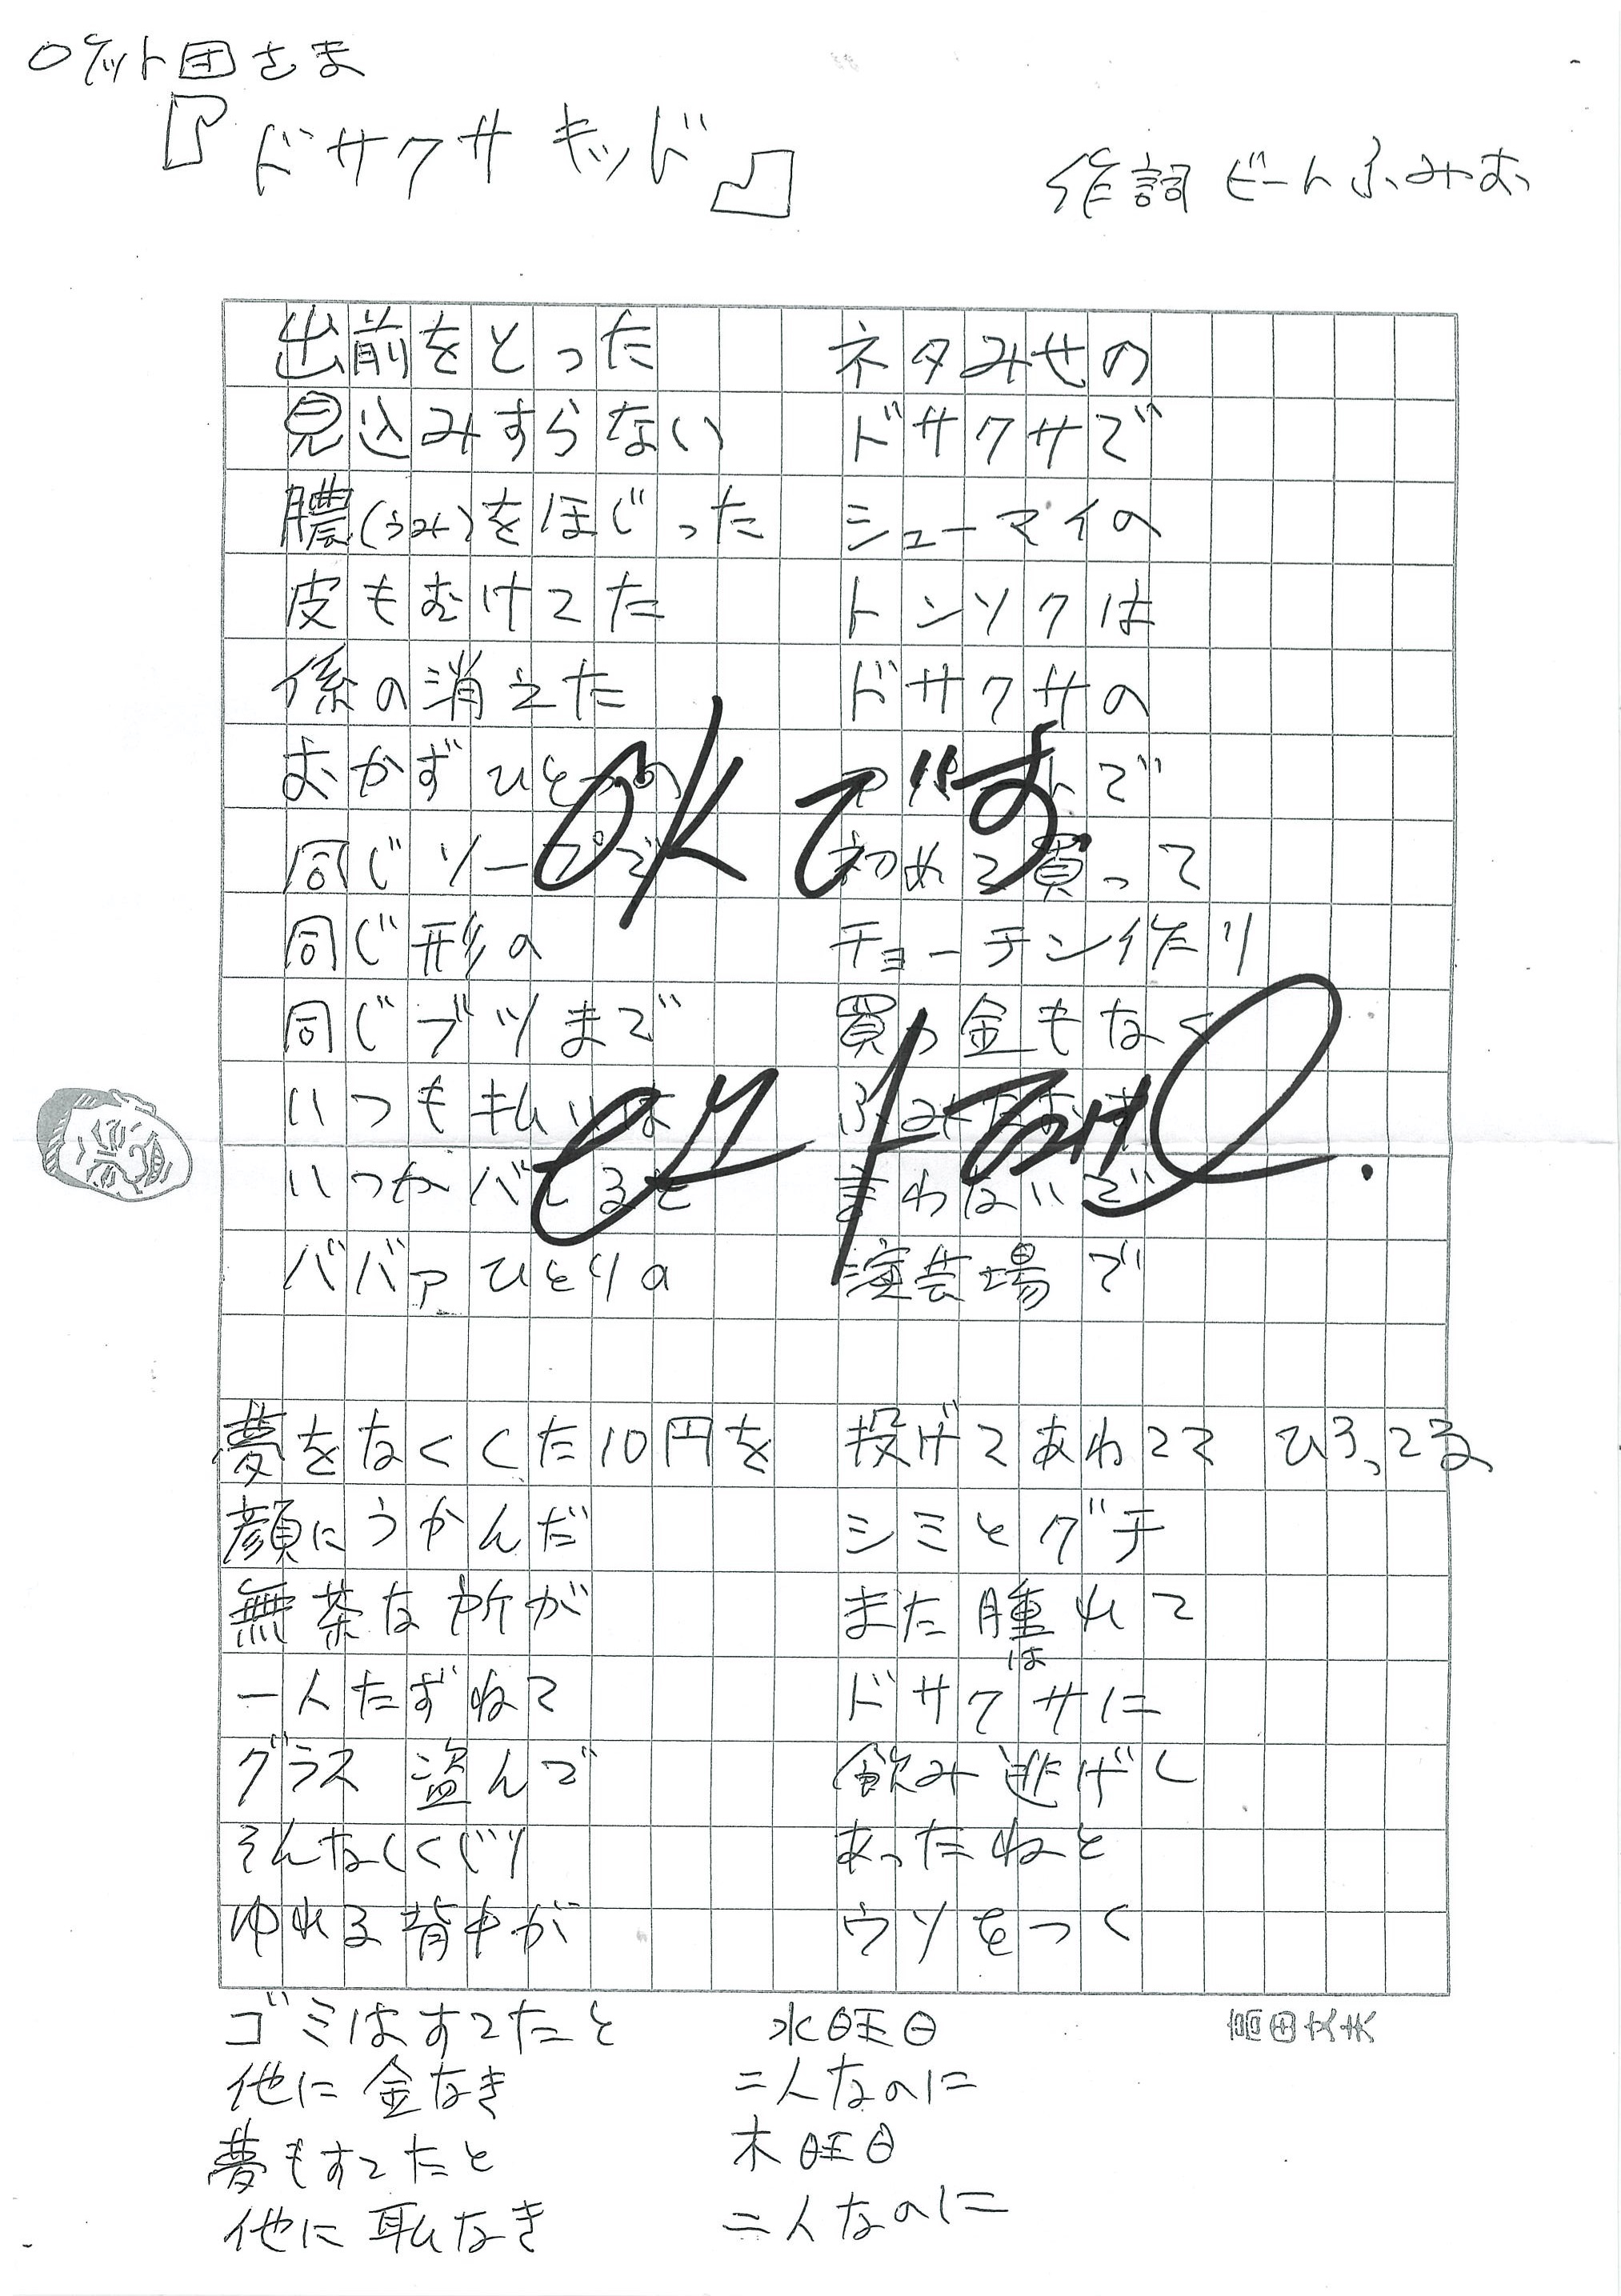 ロケット団さま
『ドサクサキッド』
作詞 ビートふみお
出前をとった ネタみせの
見込みすらない ドサクサで
膿(うみ)をほじった シューマイの
皮もむけてた トンソクは
係の消えた ドサクサの
おかずひとつの で
同じソープで 初めて買って
同じ形の チョーチン作たり
同じブツまで 買う金もなく
いつも払いは
いつかバレると 言わないで
ババァひとりの 演芸場で
夢をなくくた10円を 投げてあわてて ひろってる
顔にうかんだ シミとグチ
無茶な所が また腫れて
は
一人たずねて ドサクサに
グラス盗んで 飲み逃げし
そんなしくじり あったねと
ゆれる背中が ウソをつく
OKです。
ゴミはすてたと 水旺日
他に金なき 二人なのに
夢もすてたと 木旺日
他に恥なき 二人なのに